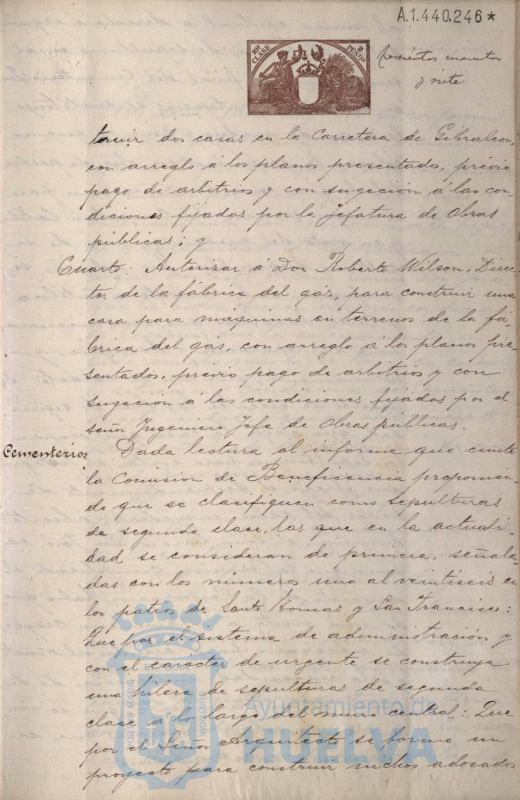 A.1.440.246*
10ª CLASE 2 PESETAS
trescientos cuarenta
y siete
truir dos casas en la Carretera de Gibraleon,
con arreglo á los planos presentados, previo
pago de arbitrios y con sugeción á las con-
diciones fijadas por la Jefatura de Obras
públicas; y
Cuarto: Autorizar á Don Roberto Wilson, Direc-
tor de la fábrica del gás, para construir una
casa para máquinas en terrenos de la fá-
brica del gás, con arreglo á los planos pre-
sentados, previo pago de arbitrios y con
sugeción á las condiciones fijadas por el
señor Ingeniero Jefe de Obras públicas.
Cementerios
Dada lectura al informe que emite
la Comisión de Beneficencia proponien-
do que se clasifiquen como sepulturas
de segunda clase, las que en la actuali-
dad se consideran de primera, señala-
das con los números uno al veintiseis en
los patios de Santo Tomas y San Francisco:
Que por el sistema de administración y
con el caracter de urgente se construya
una hilera de sepulturas de segunda
clase a lo largo del muro central: Que
por el Señor Arquitecto se forme un
proyecto para construir nichos adosados
Ayuntamiento de
HUELVA